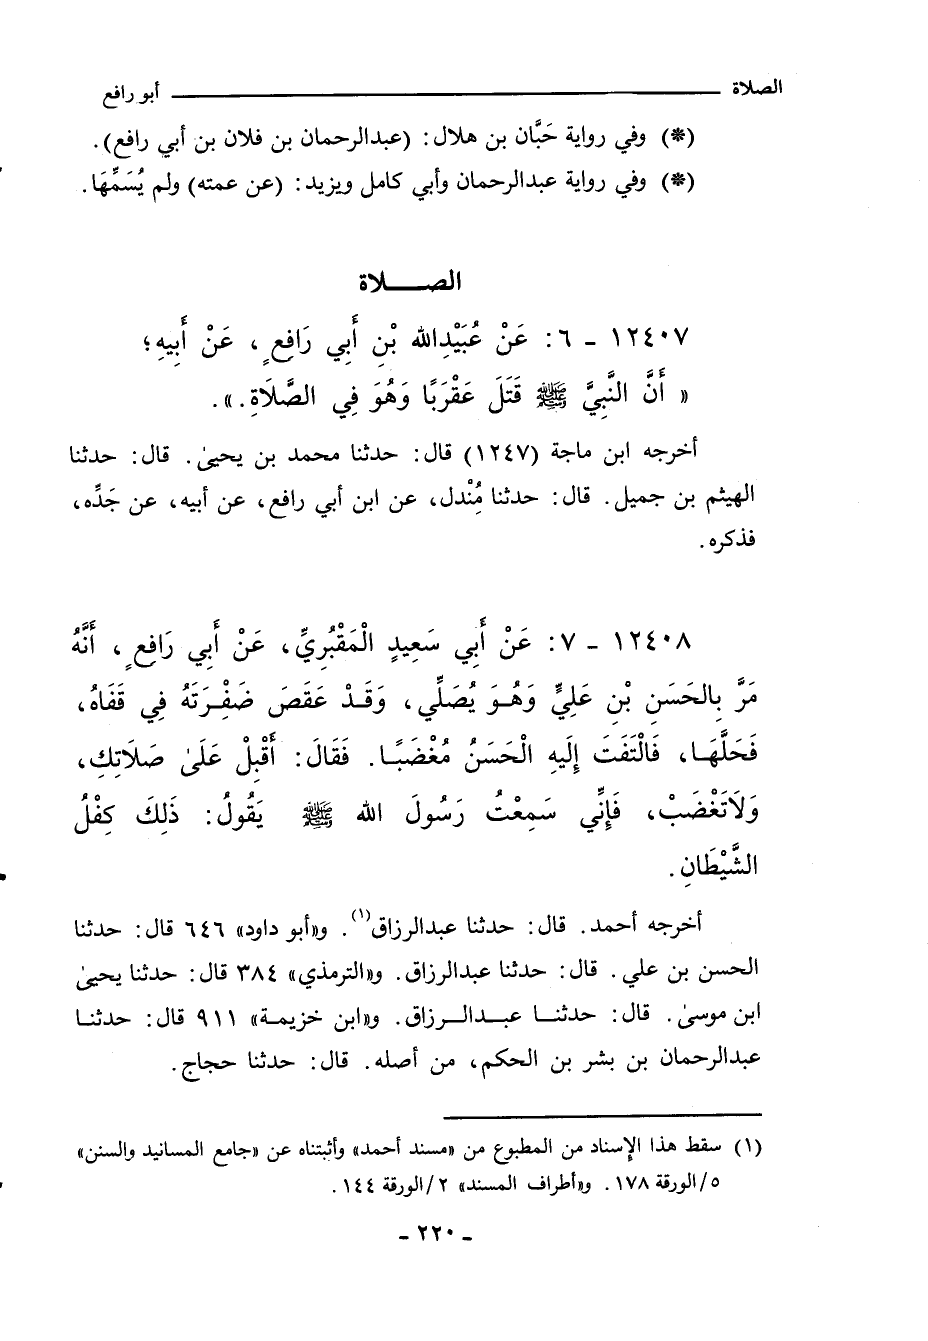 الصلاة ــــــــــــ أبو رافع
(*) وفي رواية حَبَّان بن هلال: (عبدالرحمان بن فلان بن أبي رافع).
(*) وفي رواية عبدالرحمان وأبي كامل ويزيد: (عن عمته) ولم يُسَمِّهَا.
الصـــــلاة
١٢٤٠٧ - ٦: عَنْ عُبَيْدِالله بْنِ أَبِي رَافِعٍ، عَنْ أَبِيهِ؛
« أَنَّ النَّبِيَّ ﷺ قَتَلَ عَقْرَبًا وَهُوَ فِي الصَّلَاةِ.».
أخرجه ابن ماجة (١٢٤٧) قال: حدثنا محمد بن يحيىٰ. قال: حدثنا
الهيثم بن جميل. قال: حدثنا مُِنْدل، عن ابن أبي رافع، عن أبيه، عن جَدِّه،
فذكره.
١٢٤٠٨ - ٧: عَنْ أَبِي سَعِيدٍ الْمَقْبُرِيِّ، عَنْ أَبِي رَافِعٍ، أَنَّهُ
مَرَّ بِالحَسَنِ بْنِ عَلِيٍّ وَهُـوَ يُصَلِّي، وَقَـدْ عَقَصَ ضَفْرَتَهُ فِي قَفَاهُ،
فَحَلَّهَـا، فَالْتَفَتَ إِلَيهِ الْحَسَنُ مُغْضَبًـا. فَقَالَ: أَقْبِلْ عَلَىٰ صَلَاتِكِ،
وَلَاتَغْضَبْ، فَإِنِّي سَمِعْتُ رَسُولَ الله ﷺ يَقُولُ: ذَلِكَ كِفْلُ
الشَّيْطَانِ.
أخرجه أحمد. قال: حدثنا عبدالرزاق(١). و«أبو داود» ٦٤٦ قال: حدثنا
الحسن بن علي. قال: حدثنا عبدالرزاق. و«الترمذي» ٣٨٤ قال: حدثنا يحيىٰ
ابن موسىٰ. قال: حدثنـا عبـدالـرزاق. و«ابن خزيمـة» ٩١١ قال: حدثنـا
عبدالرحمان بن بشر بن الحكم، من أصله. قال: حدثنا حجاج.
(١) سقط هذا الإسناد من المطبوع من «مسند أحمد» وأثبتناه عن «جامع المسانيد والسنن»
٥/الورقة ١٧٨. و«أطراف المسند» ٢/الورقة ١٤٤.
- ٢٢٠ -